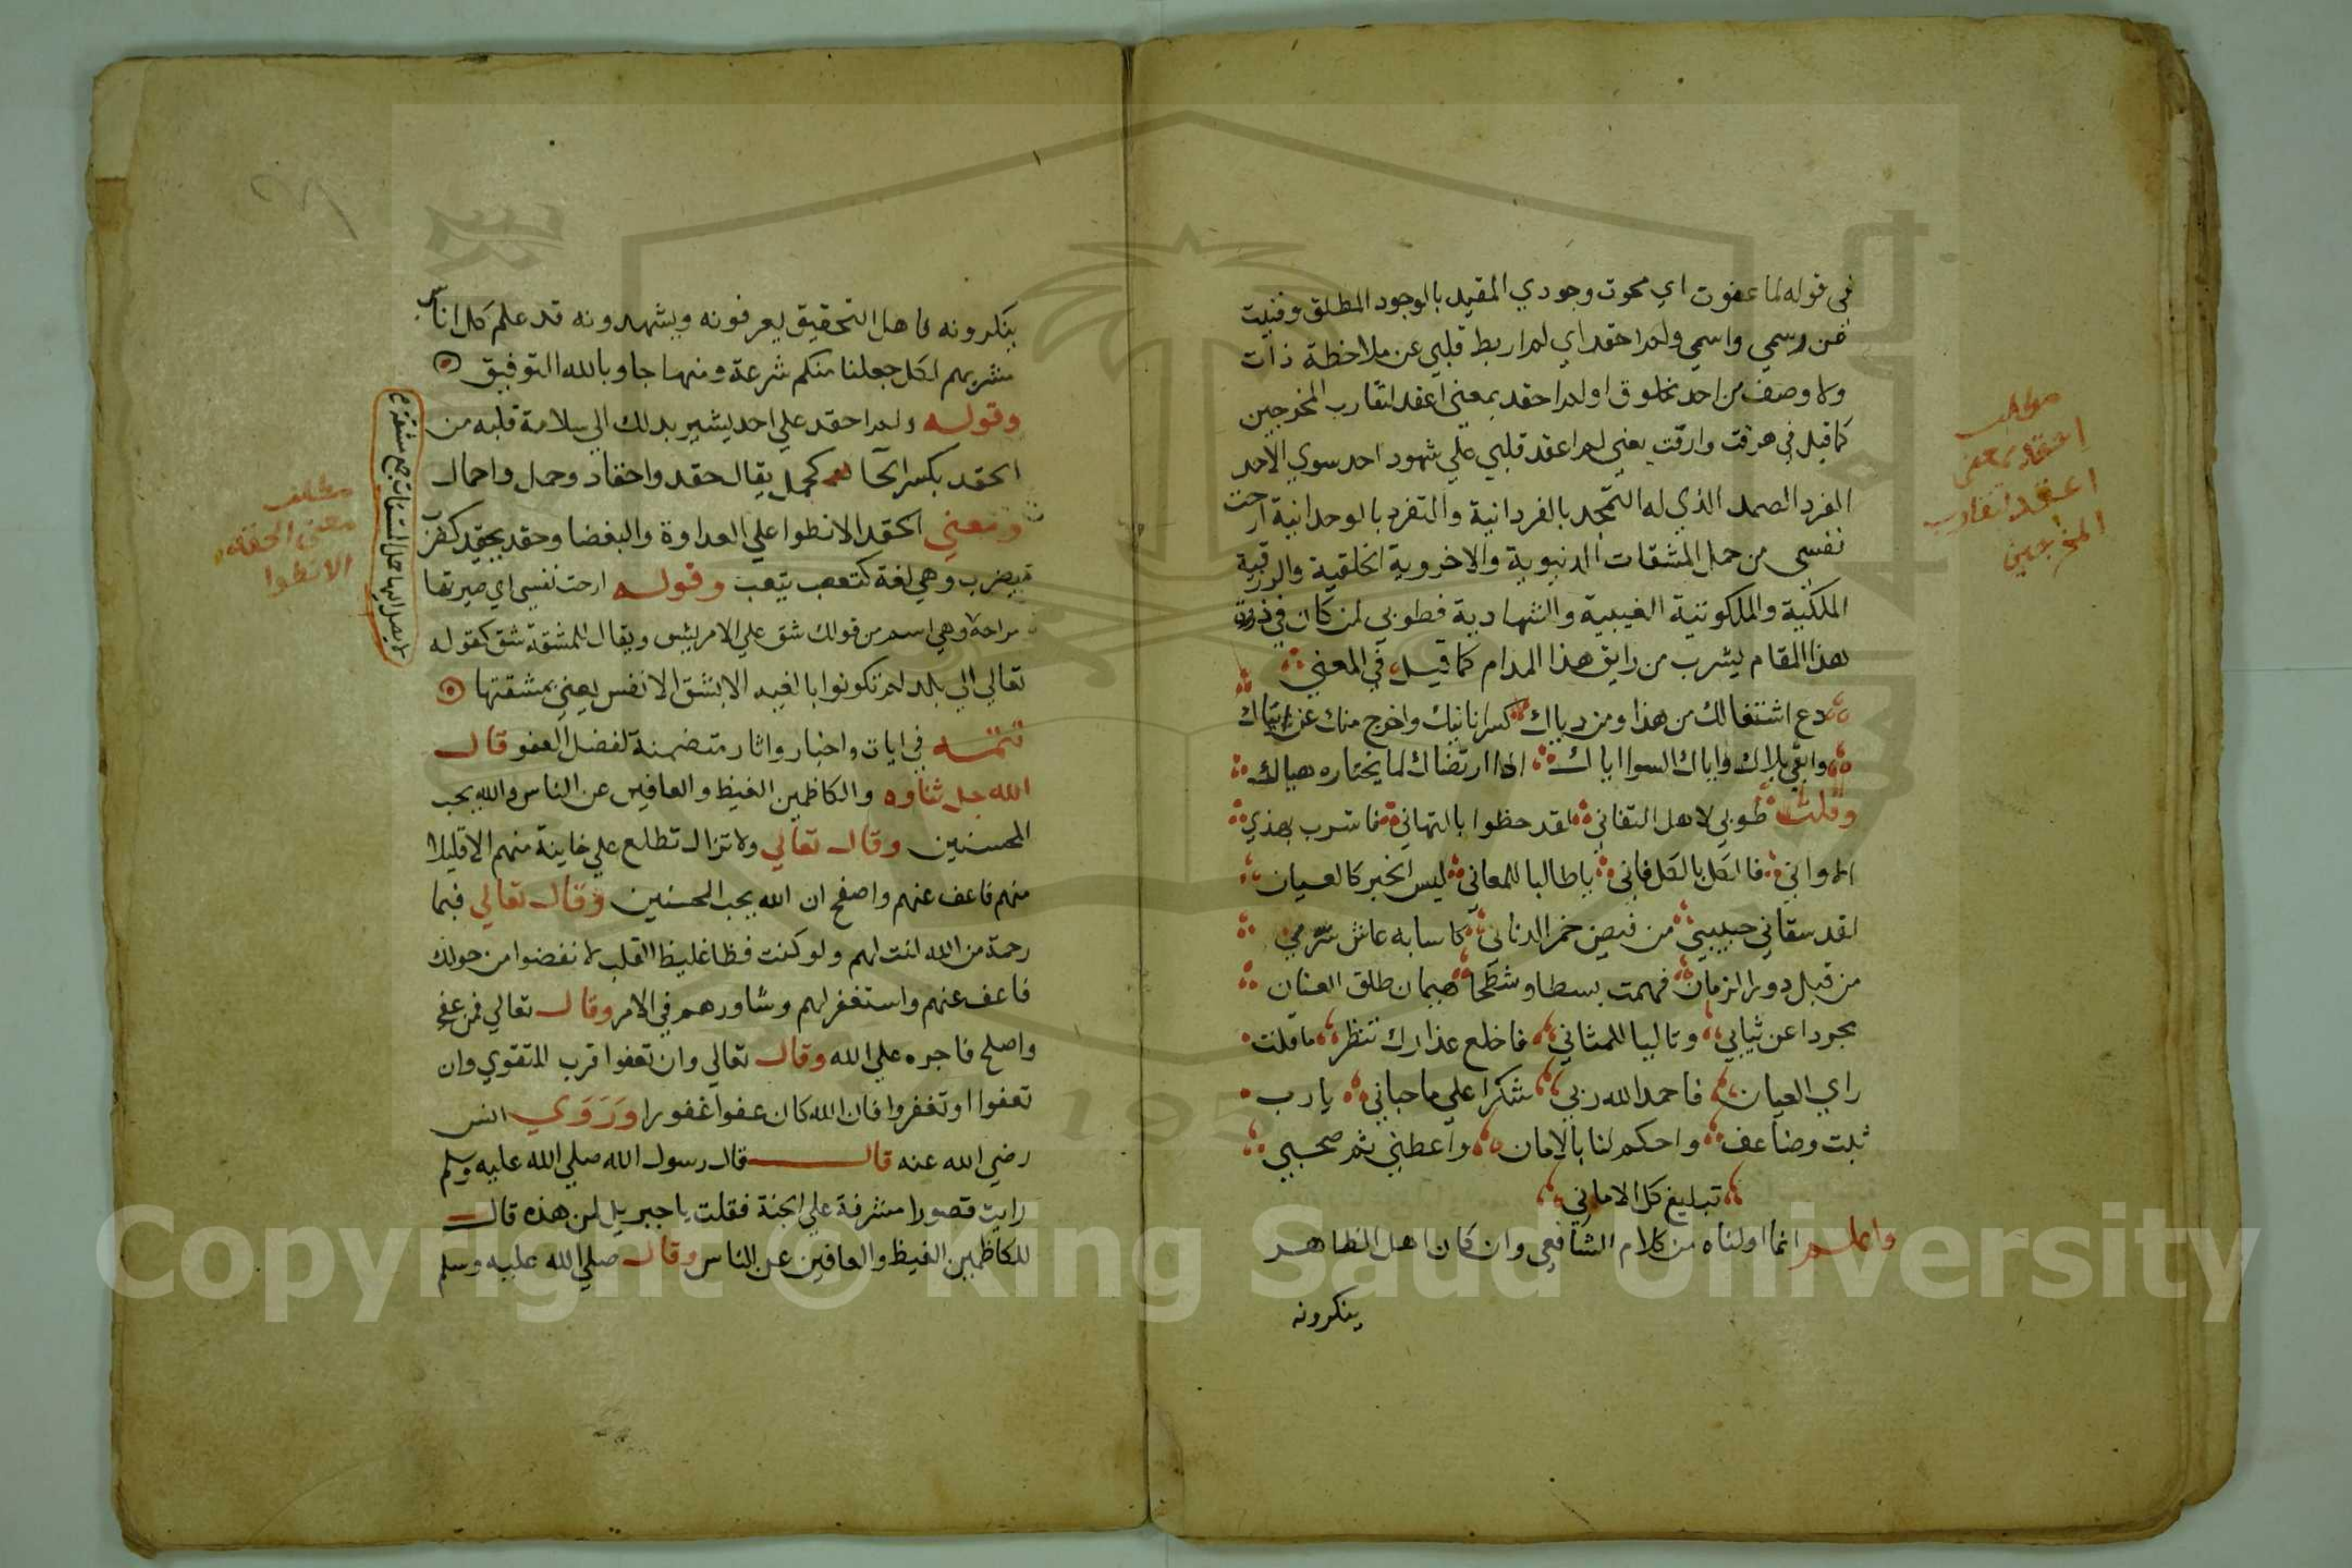 في قوله لما عفوت اي محوت وجودي المقيد بالوجود المطلق وفنيت
عن رسمي واسمي ولم احقد اي لم اربط قلبي عن ملاحظة ذات
ولا وصف من احد مخلوق او لم احقد بمعني اعقد لتقارب المخرجين
كما قيل في هرقت وارقت يعني لم اعقد قلبي علي شهود احد سوي الاحد
الفرد الصمد الذي له التمجد بالفردانية والتفرد بالوحدانية ارحت
نفسي من حمل المشقات الدنيوية والاخروية الخلقية والرزقية
الملكية والملكوتية الغيبية والشهادية فطوبي لمن كان في ذروة
هذا المقام ليشرب من رايق هذا المدام كما قيل في المعني
دع اشتغالك من هذا ومن دياك كسرانانيك واخرج منك عن
وابقي بلاك واياك السوا اياك اذا ارتضاك لما يختاره هياك
وقلت طوبي لاهل التفاني لقد حظوا بالتهاني فاشرب بهذي
الاواني فالكل بالكل فاني ياطالبا للمعاني ليس الخبر كالعيان
لقد سقاني حبيبي من فيض خمر الدنان كاسا به عاش سرمي
من قبل دور الزمان فهمت بسطا وشطحا هيمان طلق العنان
مجردا عن ثيابي وتاليا للمثاني فاخلع عذارك تنظر ما قلت
راي العيان فاحمد الله ربي شكرا علي ما حباني يارب
ثبت وضاعف واحكم لنا بالامان واعطني ثم صحبي
تبليغ كل الاماني
واعلم انما اولناه من كلام الشافعي وان كان اهل الظاهر
ينكرونه
مطلب
احقد بمعني
اعقد لتقارب
المخرجين
ينكرونه فاهل التحقيق يعرفونه ويشهدونه قد علم كل اناس
مشربهم لكل جعلنا منكم شرعة ومنهاجا وبالله التوفيق
وقوله ولم احقد علي احد يشير بدلك الي سلامة قلبه من
الحقد بكسر الحا كحمل يقال حقد واحقاد وحمل واحمال
ومعني الحقد الانطوا علي العداوة والبغضا وحقد يحقد كضرب
يضرب وهي لغة كتعب يتعب وقوله ارحت نفسي اي صيرتها
مراحة وهي اسم من قولك شق علي الامر يشق ويقال للمشقة شق كقوله
تعالي الي بلد لم تكونوا بالغيه الا بشق الانفس يعني بمشقتها
تتمة في ايات واخبار واثار متضمنة لفضل العفو قال
الله جل ثناوه والكاظمين الغيظ والعافين عن الناس والله يحب
المحسنين وقال تعالي ولا تزال تطلع علي خاينة منهم الا قليلا
منهم فاعف عنهم واصفح ان الله يحب المحسنين وقال تعالي فبما
رحمة من الله لنت لهم ولو كنت فظا غليظ القلب لانفضوا من حولك
فاعف عنهم واستغفر لهم وشاورهم في الامر وقال تعالي فمن عفي
واصلح فاجره علي الله وقال تعالي وان تعفوا اقرب للتقوي وان
تعفوا او تغفروا فان الله كان عفوا غفورا وروي انس
رضي الله عنه قال قال رسول الله صلي الله عليه وسلم
رايت قصورا مشرفة علي الجنة فقلت يا جبريل لمن هذه قال
للكاظمين الغيظ والعافين عن الناس وقال صلي الله عليه وسلم
مطلب
معني الحقد
الانطوا
Copyright © King Saud University
1957